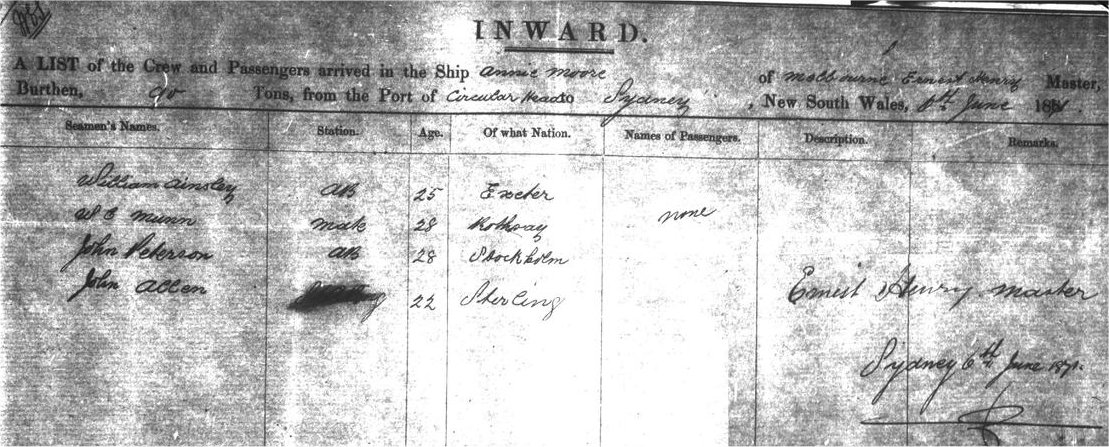 INWARD.
A LIST of the Crew and Passengers arrived in the Ship Annie Moore of Melbourne Ernest Henry Master,
Burthen, 90 Tons, from the Port of Circular Head to Sydney, New South Wales, 6th June 1871
Seamen's Names. Station. Age. Of what Nation. Names of Passengers. Description. Remarks.
William Ainsley AB 25 Exeter
W C Munn Mate 28 Rothsay none
John Peterson AB 28 Stockholm
John Allen 22 Sterling Ernest Henry Master
Sydney 6th June 1871.